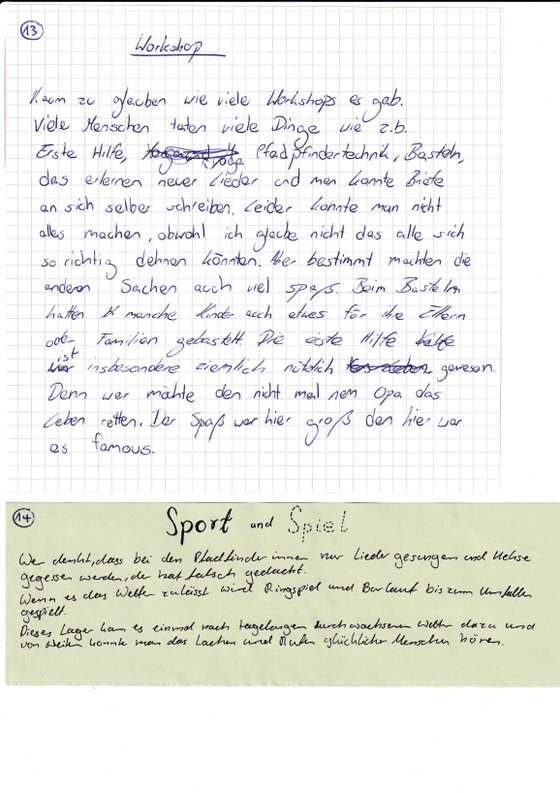 13
Workshop
Kaum zu glauben wie viele Workshops es gab.
Viele Menschen taten viele Dinge wie z.b.
Erste Hilfe, Yoga Pfadpfindertechnik, Basteln,
das erlernen neuer Lieder und man konnte Briefe
an sich selber schreiben. Leider konnte man nicht
alles machen, obwohl ich glaube nicht das alle sich
so richtig dehnen könnten. Aber bestimmt machten die
anderen Sachen auch viel spaß. Beim Basteln
hatten manche Kinder auch etwas für ihre Eltern
oder Familien gebastelt. Die erste Hilfe
ist insbesondere ziemlich nützlich gewesen.
Denn wer möchte den nicht mal nem Opa das
Leben retten. Der Spaß war hier groß den hier war
es famous.
14
Sport und Spiel
Wer denkt, dass bei den Pfadfinder innen nur Lieder gesungen und Kekse
gegessen werden, der hat falsch gedacht.
Wenn es das Wetter zulässt wird Ringspiel und Barlauf bis zum Umfallen
gespielt.
Dieses Lager kam es einmal nach tagelangen durchwachsenen Wetter dazu und
von weiten konnte man das Lachen und Rufen glücklicher Menschen hören.